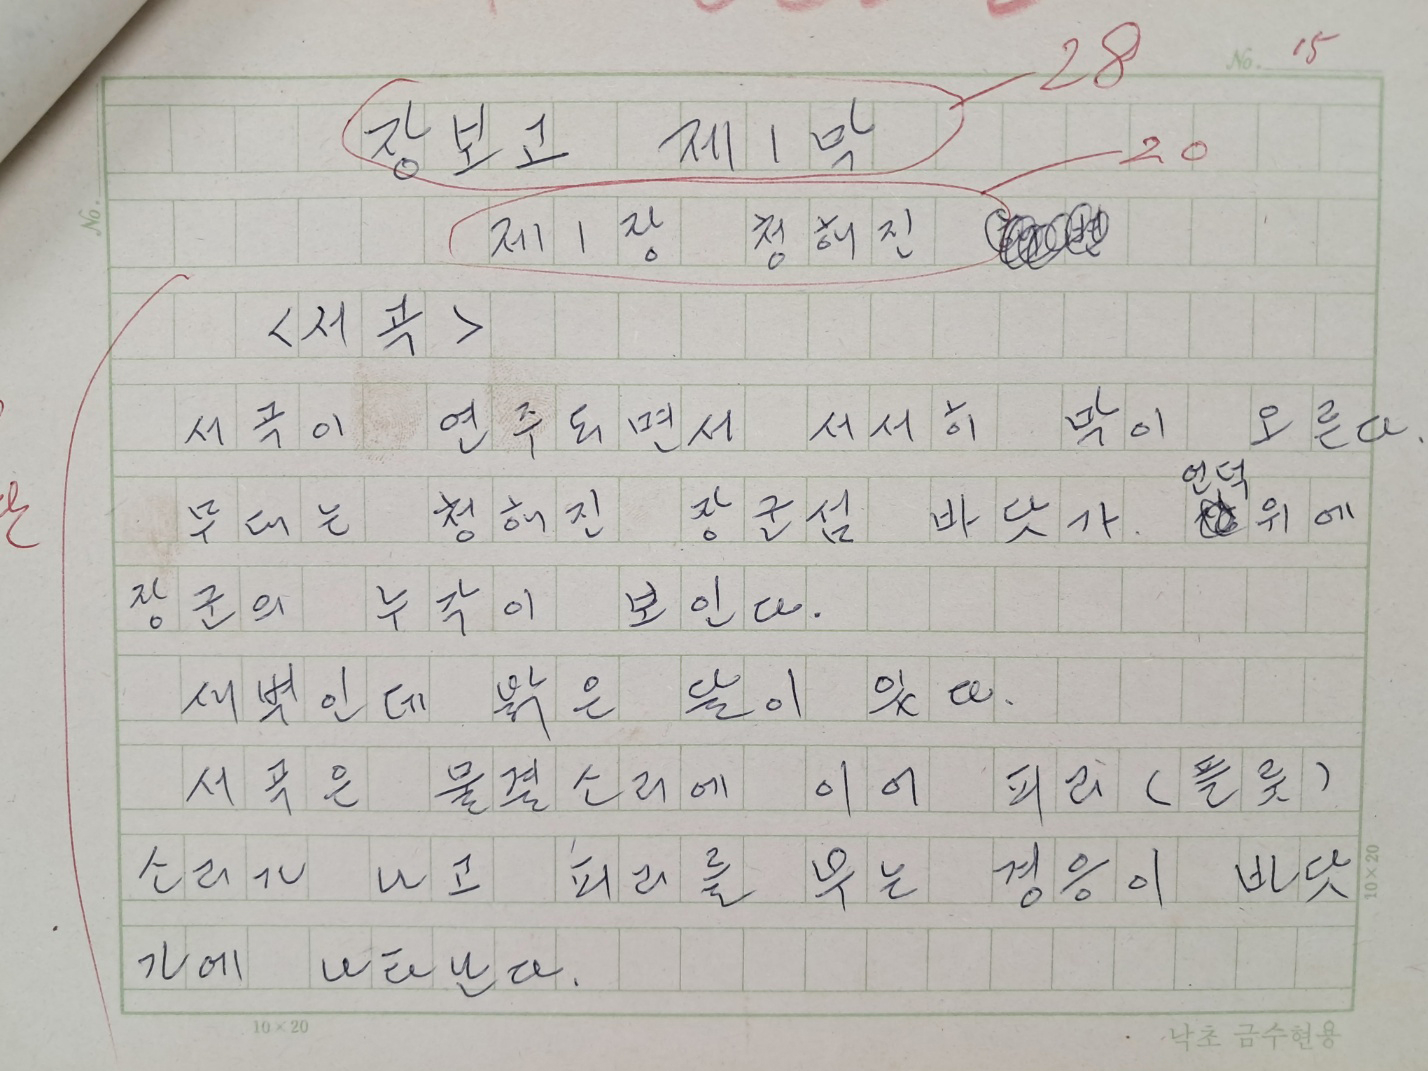 No. 15
28
장보고 제1막
20
No.
제1장 청해진
<서곡>
서곡이 연주되면서 서서히 막이 오른다.
언덕
무대는 청해진 장군섬 바닷가. 위에
장군의 누각이 보인다.
새벽인데 밝은 달이 있다.
서곡은 물결소리에 이어 피리(플룻)
소리가 나고 피리를 부는 정응이 바닷
가에 나타난다.
10×20
10×20
낙초 금수현용